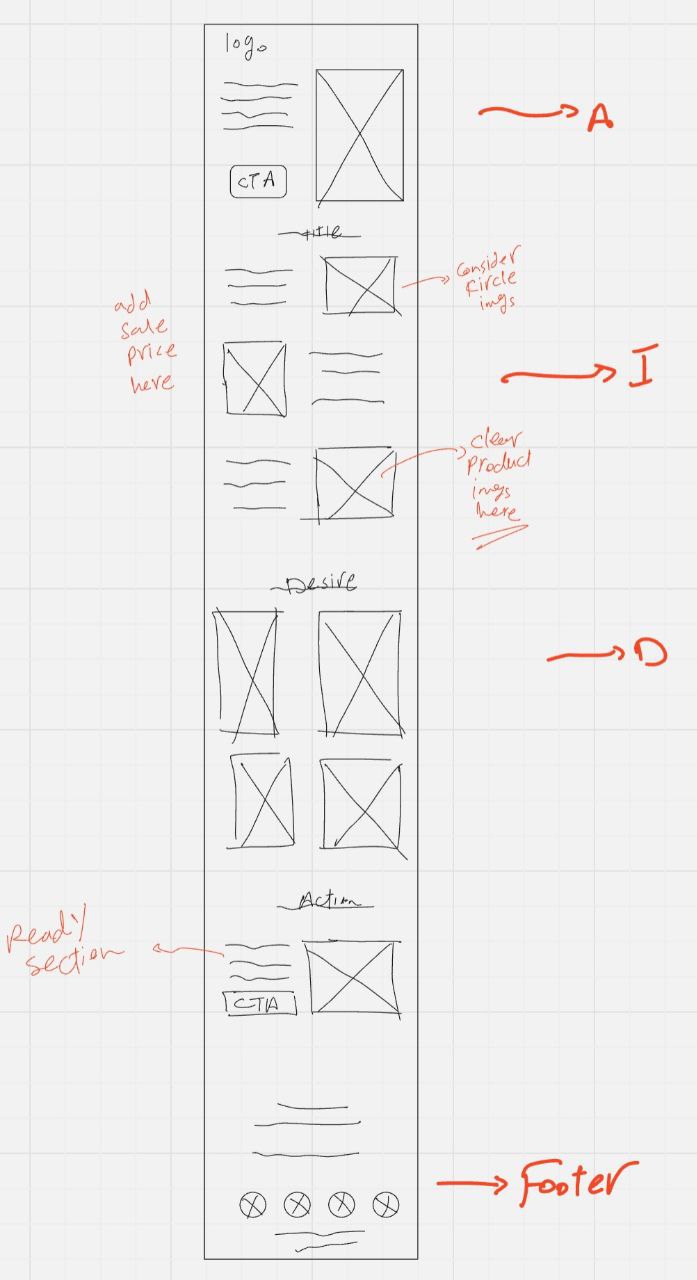 logo
A
CTA
title
Consider
Circle
imgs
add
sale
price
here
I
clear
product
imgs
here
Desire
D
Action
Ready
section
CTA
Footer